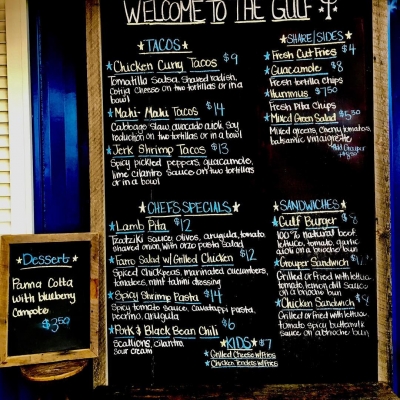 WELCOME TO THE GULF
TACOS
Chicken Curry Tacos $9
Tomatilla Salsa, shaved radish,
Cotija Cheese on two tortillas or in a
bowl
Mahi-Mahi Tacos $14
Cabbage Slaw, avocado aioli, soy
reduction on two tortillas or in a bowl
Jerk Shrimp Tacos $13
Spicy pickled peppers, guacamole,
lime cilantro sauce on two tortillas
or in a bowl
CHEFS SPECIALS
Lamb Pita $12
Tzatziki sauce, olives, arugula, tomato
shaved onion, with orzo pasta salad
Farro Salad w/ Grilled Chicken $12
Spiced chickpeas, marinated cucumbers,
tomatoes, mint tahini dressing
Spicy Shrimp Pasta $14
Spicy tomato sauce, cavatappi pasta,
pecorino, arugula
Pork & Black Bean Chili $6
Scallions, cilantro
Sour cream
SHARE/SIDES
Fresh Cut Fries $4
Guacamole $8
Fresh tortilla chips
Hummus $7.50
Fresh Pita Chips
Mixed Green Salad $5.50
Mixed greens, cherry tomatoes,
balsamic vinaigrette
SANDWICHES
Gulf Burger $8
100% natural beef,
lettuce, tomato, garlic
aioli on a brioche bun
Grouper Sandwich $12
Grilled or Fried with lettuce
tomato, lemon dill sauce
on a brioche bun
Chicken Sandwich $8
Grilled or Fried with lettuce,
tomato spicy buttermilk
sauce on a brioche bun
KIDS $7
Grilled Cheese w/Fries
Chicken Tenders w/Fries
Dessert
Panna Cotta
with blueberry
compote
$3.50